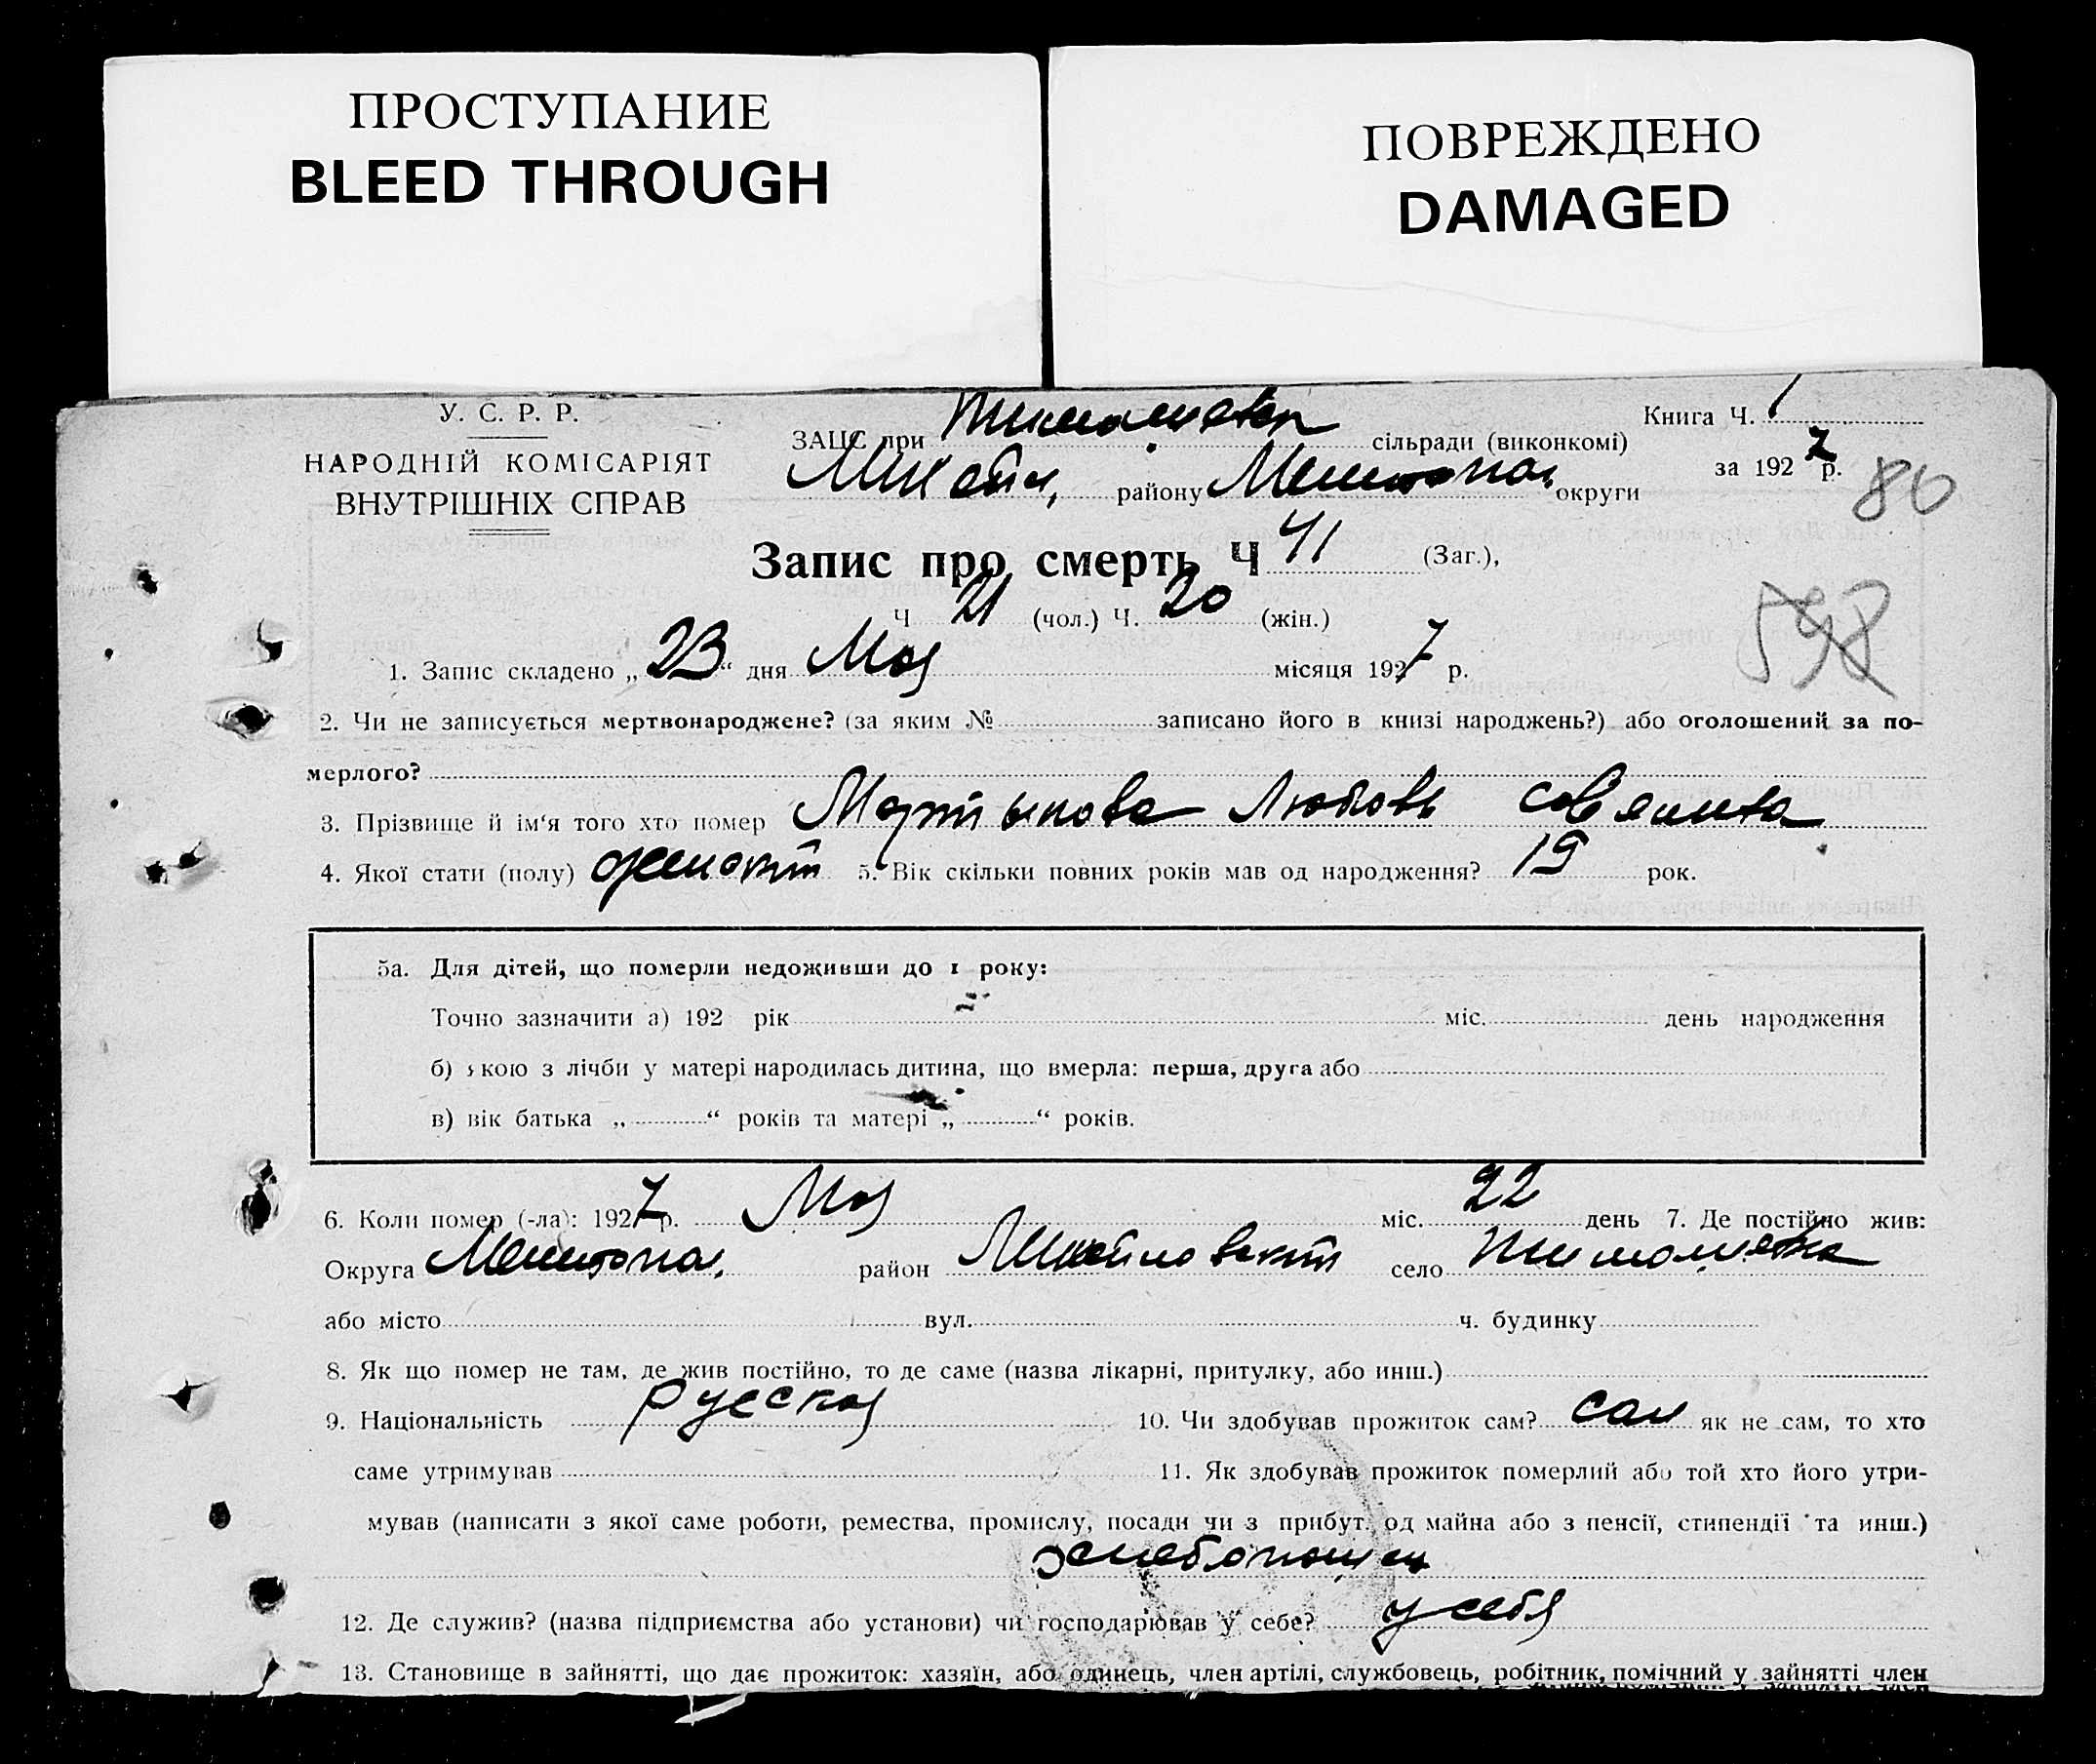 ПРОСТУПАНИЕ
BLEED THROUGH
ПОВРЕЖДЕНО
DAMAGED
У. С. Р. Р.
НАРОДНІЙ КОМІСАРІЯТ
ВНУТРІШНІХ СПРАВ
Книга Ч. 1
за 1927 р.
80
ЗАЦС при Тимошевск сільради (виконкомі)
Михайл. району Мелитопол. округи
Запис про смерть Ч 41 (Заг.),
Ч 21 (чол.) Ч. 20 (жін.)
598
1. Запис складено „23“ дня Мая місяця 1927 р.
2. Чи не записується мертвонароджене? (за яким № записано його в книзі народжень?) або оголошений за по-
мерлого?
3. Прізвище й ім'я того хто помер Мартынова Любовь
4. Якої стати (полу) женский 5. Вік скільки повних років мав од народження? 19 рок.
5а. Для дітей, що померли недоживши до 1 року:
Точно зазначити а) 192 рік міс. день народження
б) якою з лічби у матері народилась дитина, що вмерла: перша, друга або
в) вік батька „ “ років та матері „ “ років.
6. Коли помер (-ла): 1927 р. Мая міс. 22 день 7. Де постійно жив:
Округа Мелитопол. район Михайловский село Тимошевка
або місто вул. ч. будинку
8. Як що помер не там, де жив постійно, то де саме (назва лікарні, притулку, або инш.)
9. Національність русская 10. Чи здобував прожиток сам? сам як не сам, то хто
саме утримував 11. Як здобував прожиток померлий або той хто його утри-
мував (написати з якої саме роботи, ремества, промислу, посади чи з прибут. од майна або з пенсії, стипендії та инш.)
хлебопашец
12. Де служив? (назва підприємства або установи) чи господарював у себе? у себя
13. Становище в зайнятті, що дає прожиток: хазяїн, або одинець, член артілі, службовець, робітник, помічний у зайнятті член